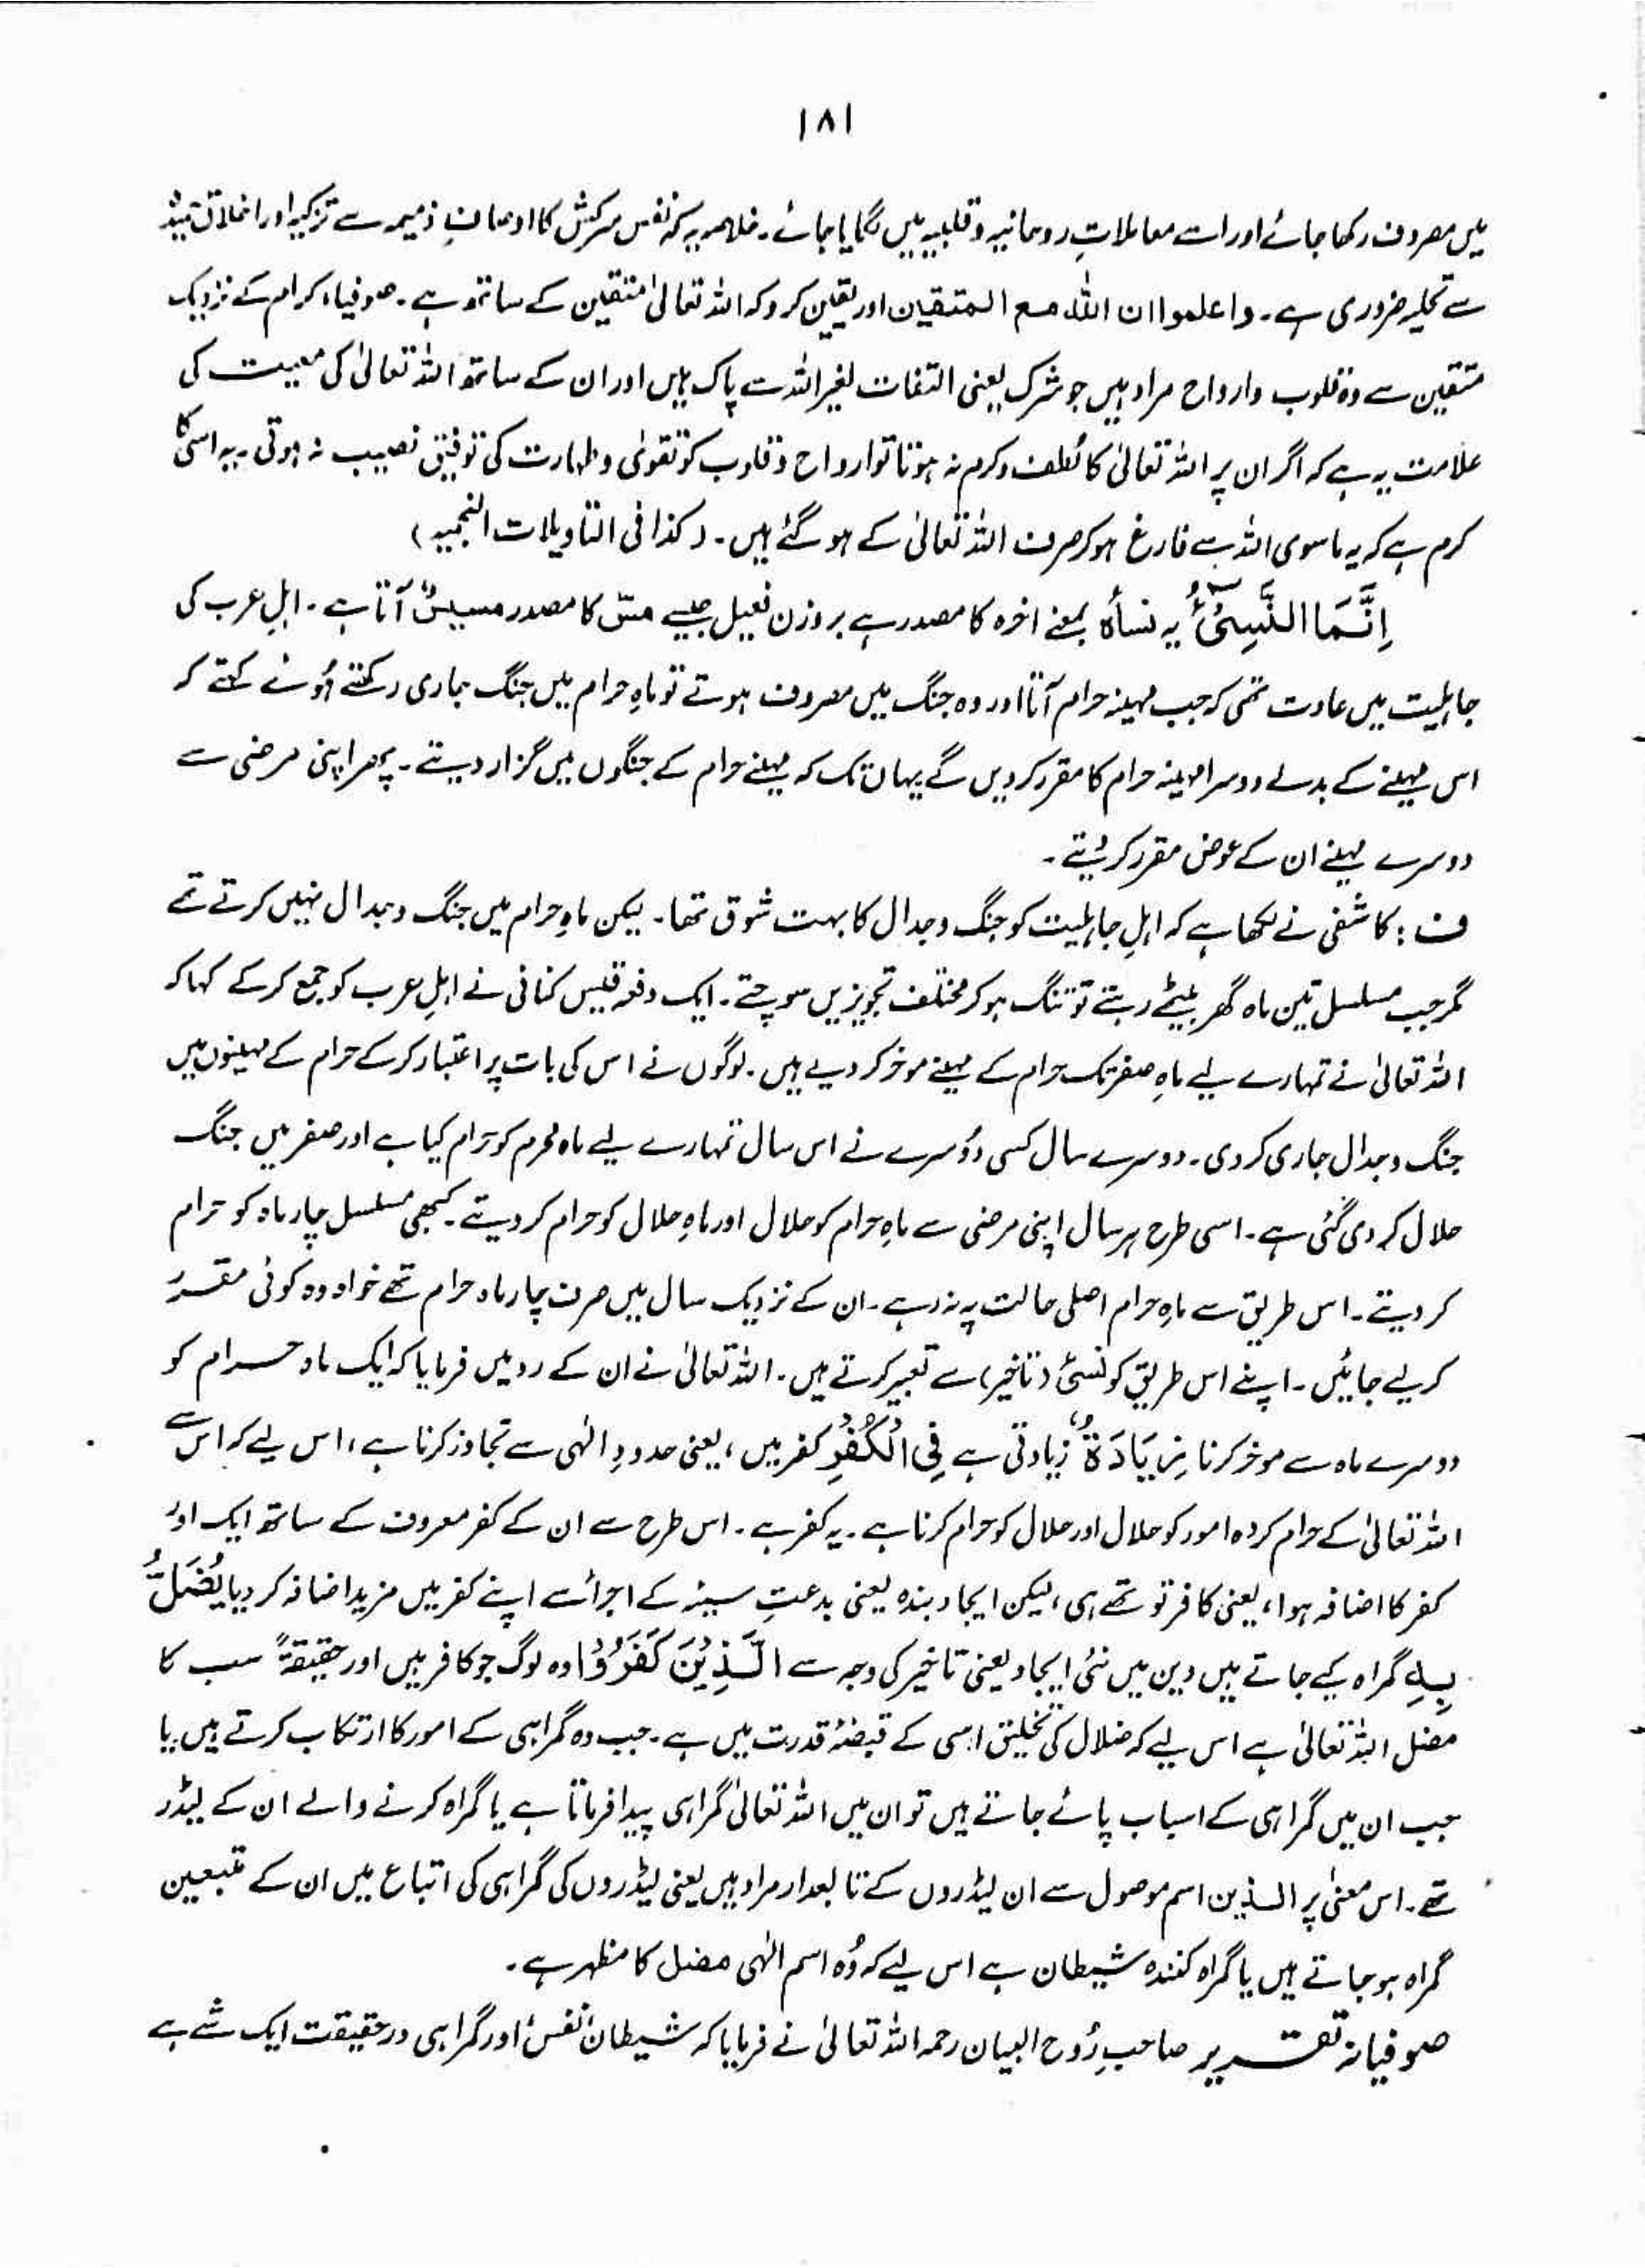 ۱۸۱
میں مصروف رکھا جائے اور اسے معاملاتِ روحانیہ و قلبیہ میں لگایا جائے۔ خلاصہ یہ کہ نفس سرکش کا اوصافِ ذمیمہ سے تزکیہ اور اخلاق حمیدہ
سے تحلیہ ضروری ہے۔ واعلموا ان اللّٰہ مع المتقین اور یقین کرو کہ اللہ تعالیٰ متقین کے ساتھ ہے۔ صوفیاء کرام کے نزدیک
متقین سے وہ قلوب وارواح مراد ہیں جو شرک یعنی التفات لغیر اللہ سے پاک ہیں اور ان کے ساتھ اللہ تعالیٰ کی معیت کی
علامت یہ ہے کہ اگر ان پر اللہ تعالیٰ کا لُطف و کرم نہ ہوتا تو ارواح و قلوب کو تقویٰ و طہارت کی توفیق نصیب نہ ہوتی۔ یہ اسی کا
کرم ہے کہ یہ ماسوی اللہ سے فارغ ہو کر صرف اللہ تعالیٰ کے ہو گئے ہیں۔ (کذا فی التاویلات النجمیہ)
اِنَّمَا النَّسِیْٓءُ یہ نسأہ بمعنے اخرہ کا مصدر ہے بروزن فعیل جیسے مسّ کا مصدر مسیسٌ آتا ہے۔ اہلِ عرب کی
جاہلیت میں عادت تھی کہ جب مہینہ حرام آتا اور وہ جنگ میں مصروف ہوتے تو ماہِ حرام میں جنگ جاری رکھتے ہُوئے کہتے کہ
اس مہینے کے بدلے دوسرا مہینہ حرام کا مقرر کر دیں گے یہاں تک کہ مہینے حرام کے جنگوں میں گزار دیتے۔ پھر اپنی مرضی سے
دوسرے مہینے ان کے عوض مقرر کر دیتے۔
ف : کاشفی نے لکھا ہے کہ اہلِ جاہلیت کو جنگ و جدال کا بہت شوق تھا۔ لیکن ماہِ حرام میں جنگ و جدال نہیں کرتے تھے
مگر جب مسلسل تین ماہ گھر بیٹھے رہتے تو تنگ ہو کر مختلف تجویزیں سوچتے۔ ایک دفعہ قلیس کنانی نے اہلِ عرب کو جمع کر کے کہا کہ
اللہ تعالیٰ نے تمہارے لیے ماہِ صفر تک حرام کے مہینے موخر کر دیے ہیں۔ لوگوں نے اس کی بات پر اعتبار کر کے حرام کے مہینوں میں
جنگ و جدال جاری کر دی۔ دوسرے سال کسی دُوسرے نے اس سال تمہارے لیے ماہ محرم کو حرام کیا ہے اور صفر میں جنگ
حلال کر دی گئی ہے۔ اسی طرح ہر سال اپنی مرضی سے ماہِ حرام کو حلال اور ماہِ حلال کو حرام کر دیتے۔ کبھی مسلسل چار ماہ کو حرام
کر دیتے۔ اس طریق سے ماہِ حرام اصلی حالت پہ نہ رہے۔ ان کے نزدیک سال میں صرف چار ماہ حرام تھے خواہ وہ کوئی مقرر
کر لیے جائیں۔ اپنے اس طریق کو نسئ (تاخیر) سے تعبیر کرتے ہیں۔ اللہ تعالیٰ نے ان کے رد میں فرمایا کہ ایک ماہ حرام کو
دوسرے ماہ سے موخر کرنا زِیَادَۃٌ زیادتی ہے فِی الْکُفْرِ کفر میں، یعنی حدودِ الٰہی سے تجاوز کرنا ہے، اس لیے کہ اس سے
اللہ تعالیٰ کے حرام کردہ امور کو حلال اور حلال کو حرام کرنا ہے۔ یہ کفر ہے۔ اس طرح سے ان کے کفر معروف کے ساتھ ایک اور
کفر کا اضافہ ہوا، یعنی کافر تو تھے ہی، لیکن ایجاد بندہ یعنی بدعتِ سیئہ کے اجرأ سے اپنے کفر میں مزید اضافہ کر دیا یُضَلُّ
بِہِ گمراہ کیے جاتے ہیں دین میں نئی ایجاد یعنی تاخیر کی وجہ سے الَّذِیْنَ کَفَرُوْا وہ لوگ جو کافر ہیں اور حقیقۃً سب کا
مضل اللہ تعالیٰ ہے اس لیے کہ ضلال کی تخلیق اسی کے قبضۂ قدرت میں ہے۔ جب وہ گمراہی کے امور کا ارتکاب کرتے ہیں یا
جب ان میں گمراہی کے اسباب پائے جاتے ہیں تو ان میں اللہ تعالیٰ گمراہی پیدا فرماتا ہے یا گمراہ کرنے والے ان کے لیڈر
تھے۔ اس معنیٰ پر الذین اسم موصول سے ان لیڈروں کے تابعدار مراد ہیں یعنی لیڈروں کی گمراہی کی اتباع میں ان کے متبعین
گمراہ ہو جاتے ہیں یا گمراہ کنندہ شیطان ہے اس لیے کہ وُہ اسم الٰہی مضل کا مظہر ہے۔
صوفیانہ تقریر صاحبِ رُوح البیان رحمہ اللہ تعالیٰ نے فرمایا کہ شیطان نفس اور گمراہی درحقیقت ایک شے ہے